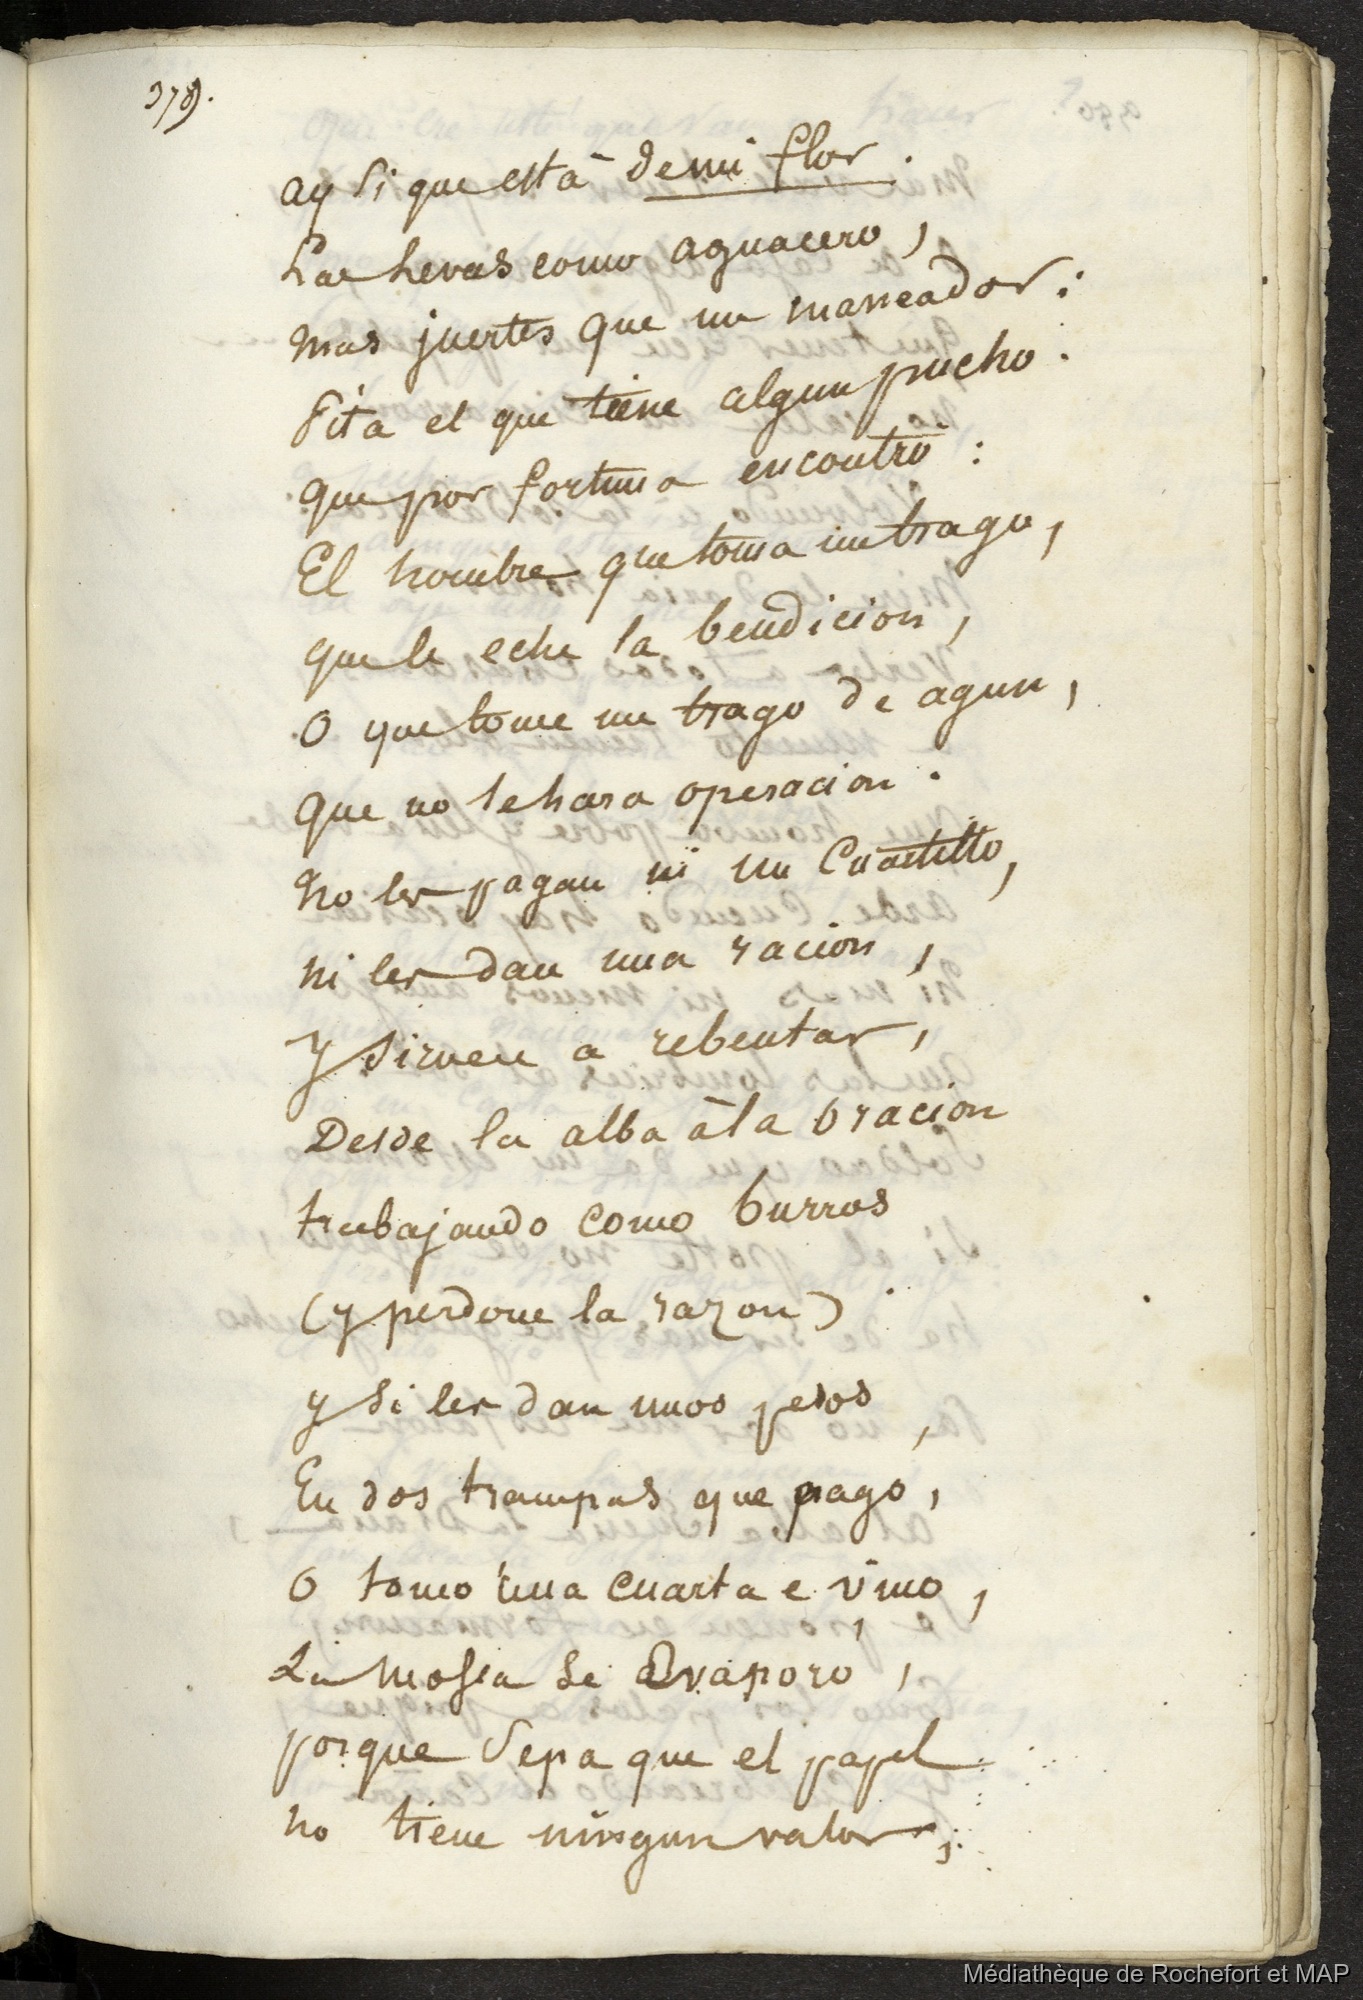 379.
ay si que està de mi flor.
Las hevas como aguacero,
mas juertes que un maneador:
Pita el que tiene algun pucho.
que por fortuna encontrò:
El hombre que toma un trago,
que le eche la bendicion,
O que tome un trago de agua,
que no le hara operacion.
No les pagan ni un Cuartillo,
ni les dan una racion,
y sirven a rebentar,
Desde la alba à la oracion
trabajando como burros
(y perdone la razon)
y si les dan unos pesos,
En dos trampas que pago,
O tomo una cuarta e vino,
La mosca se avaporo,
porque sepa que el papel
no tiene ningun valor,
Médiathèque de Rochefort et MAP